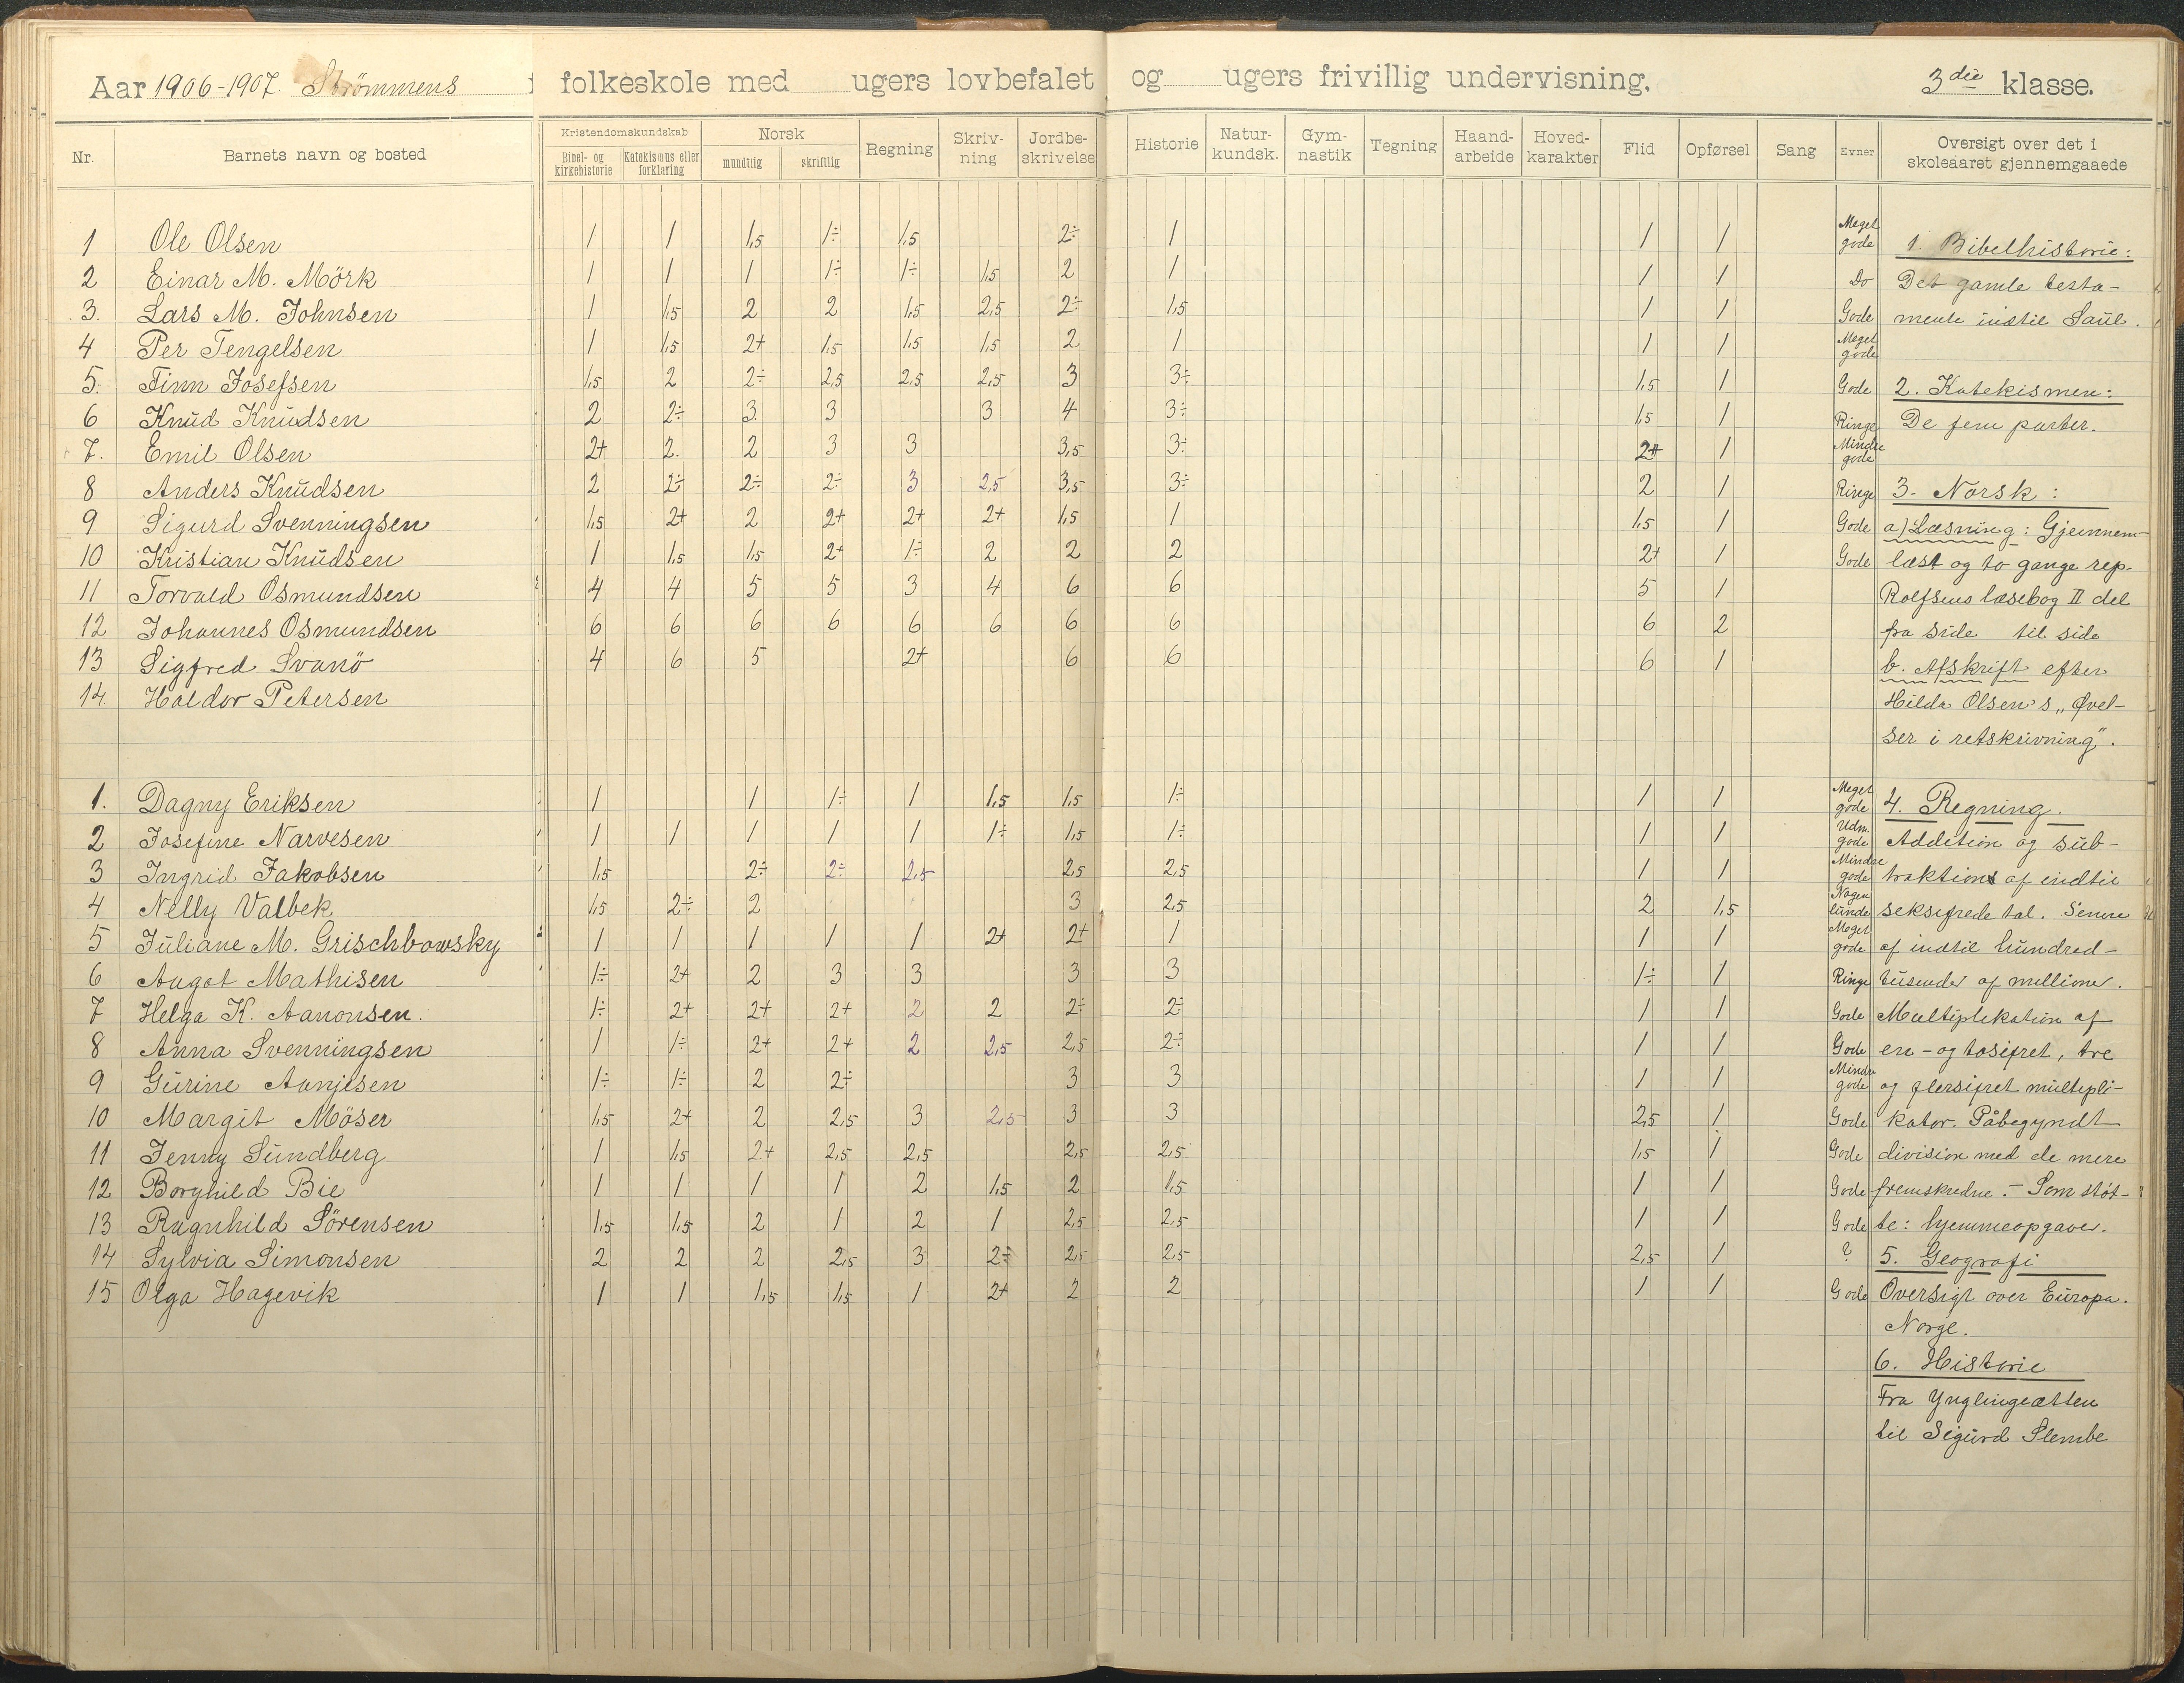 Aar 1906-1907. Strömmens folkeskole med ugers lovbefalet og ugers frivillig undervisning. 3die klasse.
Nr. Barnets navn og bosted Kristendomskundskab Bibel- og kirkehistorie Katekismus eller forklaring Norsk mundtlig skriftlig Regning Skriv-ning Jordbe-skrivelse Historie Natur-kundsk. Gym-nastik Tegning Haand-arbeide Hoved-karakter Flid Opførsel Sang Evner Oversigt over det i skoleaaret gjennemgaaede
1 Ole Olsen 1 1 1,5 1÷ 1,5 2÷ 1 1 1 Meget gode 1. Bibelhistorie:
2 Einar M. Mörk 1 1 1 1÷ 1÷ 1,5 2 1 1 1 Do Det gamle testa-
3. Lars M. Johnsen 1 1,5 2 2 1,5 2,5 2÷ 1,5 1 1 Gode mente indtil Saul.
4 Per Tengelsen 1 1,5 2+ 1,5 1,5 1,5 2 1 1 1 Meget gode
5. Finn Josefsen 1,5 2 2÷ 2,5 2,5 2,5 3 3÷ 1,5 1 Gode 2. Katekismen:
6 Knud Knudsen 2 2÷ 3 3 3 4 3÷ 1,5 1 Ringe De fem parter.
7. Emil Olsen 2+ 2. 2 3 3 3,5 3÷ 2+ 1 Mindre gode
8 Anders Knudsen 2 2÷ 2÷ 2÷ 3 2,5 3,5 3÷ 2 1 Ringe 3. Norsk:
9 Sigurd Svenningsen 1,5 2+ 2 2+ 2+ 2+ 1,5 1 1,5 1 Gode a) Læsning: Gjennem-
10 Kristian Knudsen 1 1,5 1,5 2+ 1÷ 2 2 2 2+ 1 Gode læst og to gange rep.
11 Torvald Osmundsen 4 4 5 5 3 4 6 6 5 1 Rolfsens læsebog II del
12 Johannes Osmundsen 6 6 6 6 6 6 6 6 6 2 fra side til side
13 Sigfred Svanö 4 6 5 2+ 6 6 6 1 b. Afskrift efter
14. Haldor Petersen Hilda Olsen's „Øvel-
ser i retskrivning".
1. Dagny Eriksen 1 1 1÷ 1 1,5 1,5 1÷ 1 1 Meget gode 4. Regning.
2 Josefine Narvesen 1 1 1 1 1 1÷ 1,5 1÷ 1 1 Udm. gode Addition og sub-
3 Ingrid Jakobsen 1,5 2÷ 2÷ 2,5 2,5 2,5 1 1 Mindre gode traktion af indtil
4 Nelly Valbek 1,5 2÷ 2 3 2,5 2 1,5 Nogen lunde seksifrede tal. Senere
5 Juliane M. Grischbowsky 1 1 1 1 1 2+ 2+ 1 1 1 Meget gode af indtil hundred-
6 Aagot Mathisen 1÷ 2+ 2 3 3 3 3 1÷ 1 Ringe tusender af millioner.
7 Helga K. Aanonsen. 1÷ 2+ 2+ 2+ 2 2 2÷ 2÷ 1 1 Gode Multiplikation af
8 Anna Svenningsen 1 1÷ 2+ 2+ 2 2,5 2,5 2÷ 1 1 Gode en- og tosifret, tre
9 Gurine Aanjesen 1÷ 1÷ 2 2÷ 3 3 1 1 Mindre gode og flersifret multipli-
10 Margit Möser 1,5 2+ 2 2,5 3 2,5 3 3 2,5 1 Gode kator. Påbegyndt
11 Jenny Sundberg 1 1,5 2+ 2,5 2,5 2,5 2,5 1,5 1 Gode division med de mere
12 Borghild Bie 1 1 1 1 2 1,5 2 1,5 1 1 Gode fremskredne. - Som støt-
13 Ragnhild Sörensen 1,5 1,5 2 1 2 1 2,5 2,5 1 1 Gode te: hjemmeopgaver.
14 Sylvia Simonsen 2 2 2 2,5 3 2÷ 2,5 2,5 2,5 1 ? 5. Geografi
15 Olga Hagevik 1 1 1,5 1,5 1 2+ 2 2 1 1 Gode Oversigt over Europa.
Norge.
6. Historie
Fra Ynglingeætten
til Sigurd Slembe